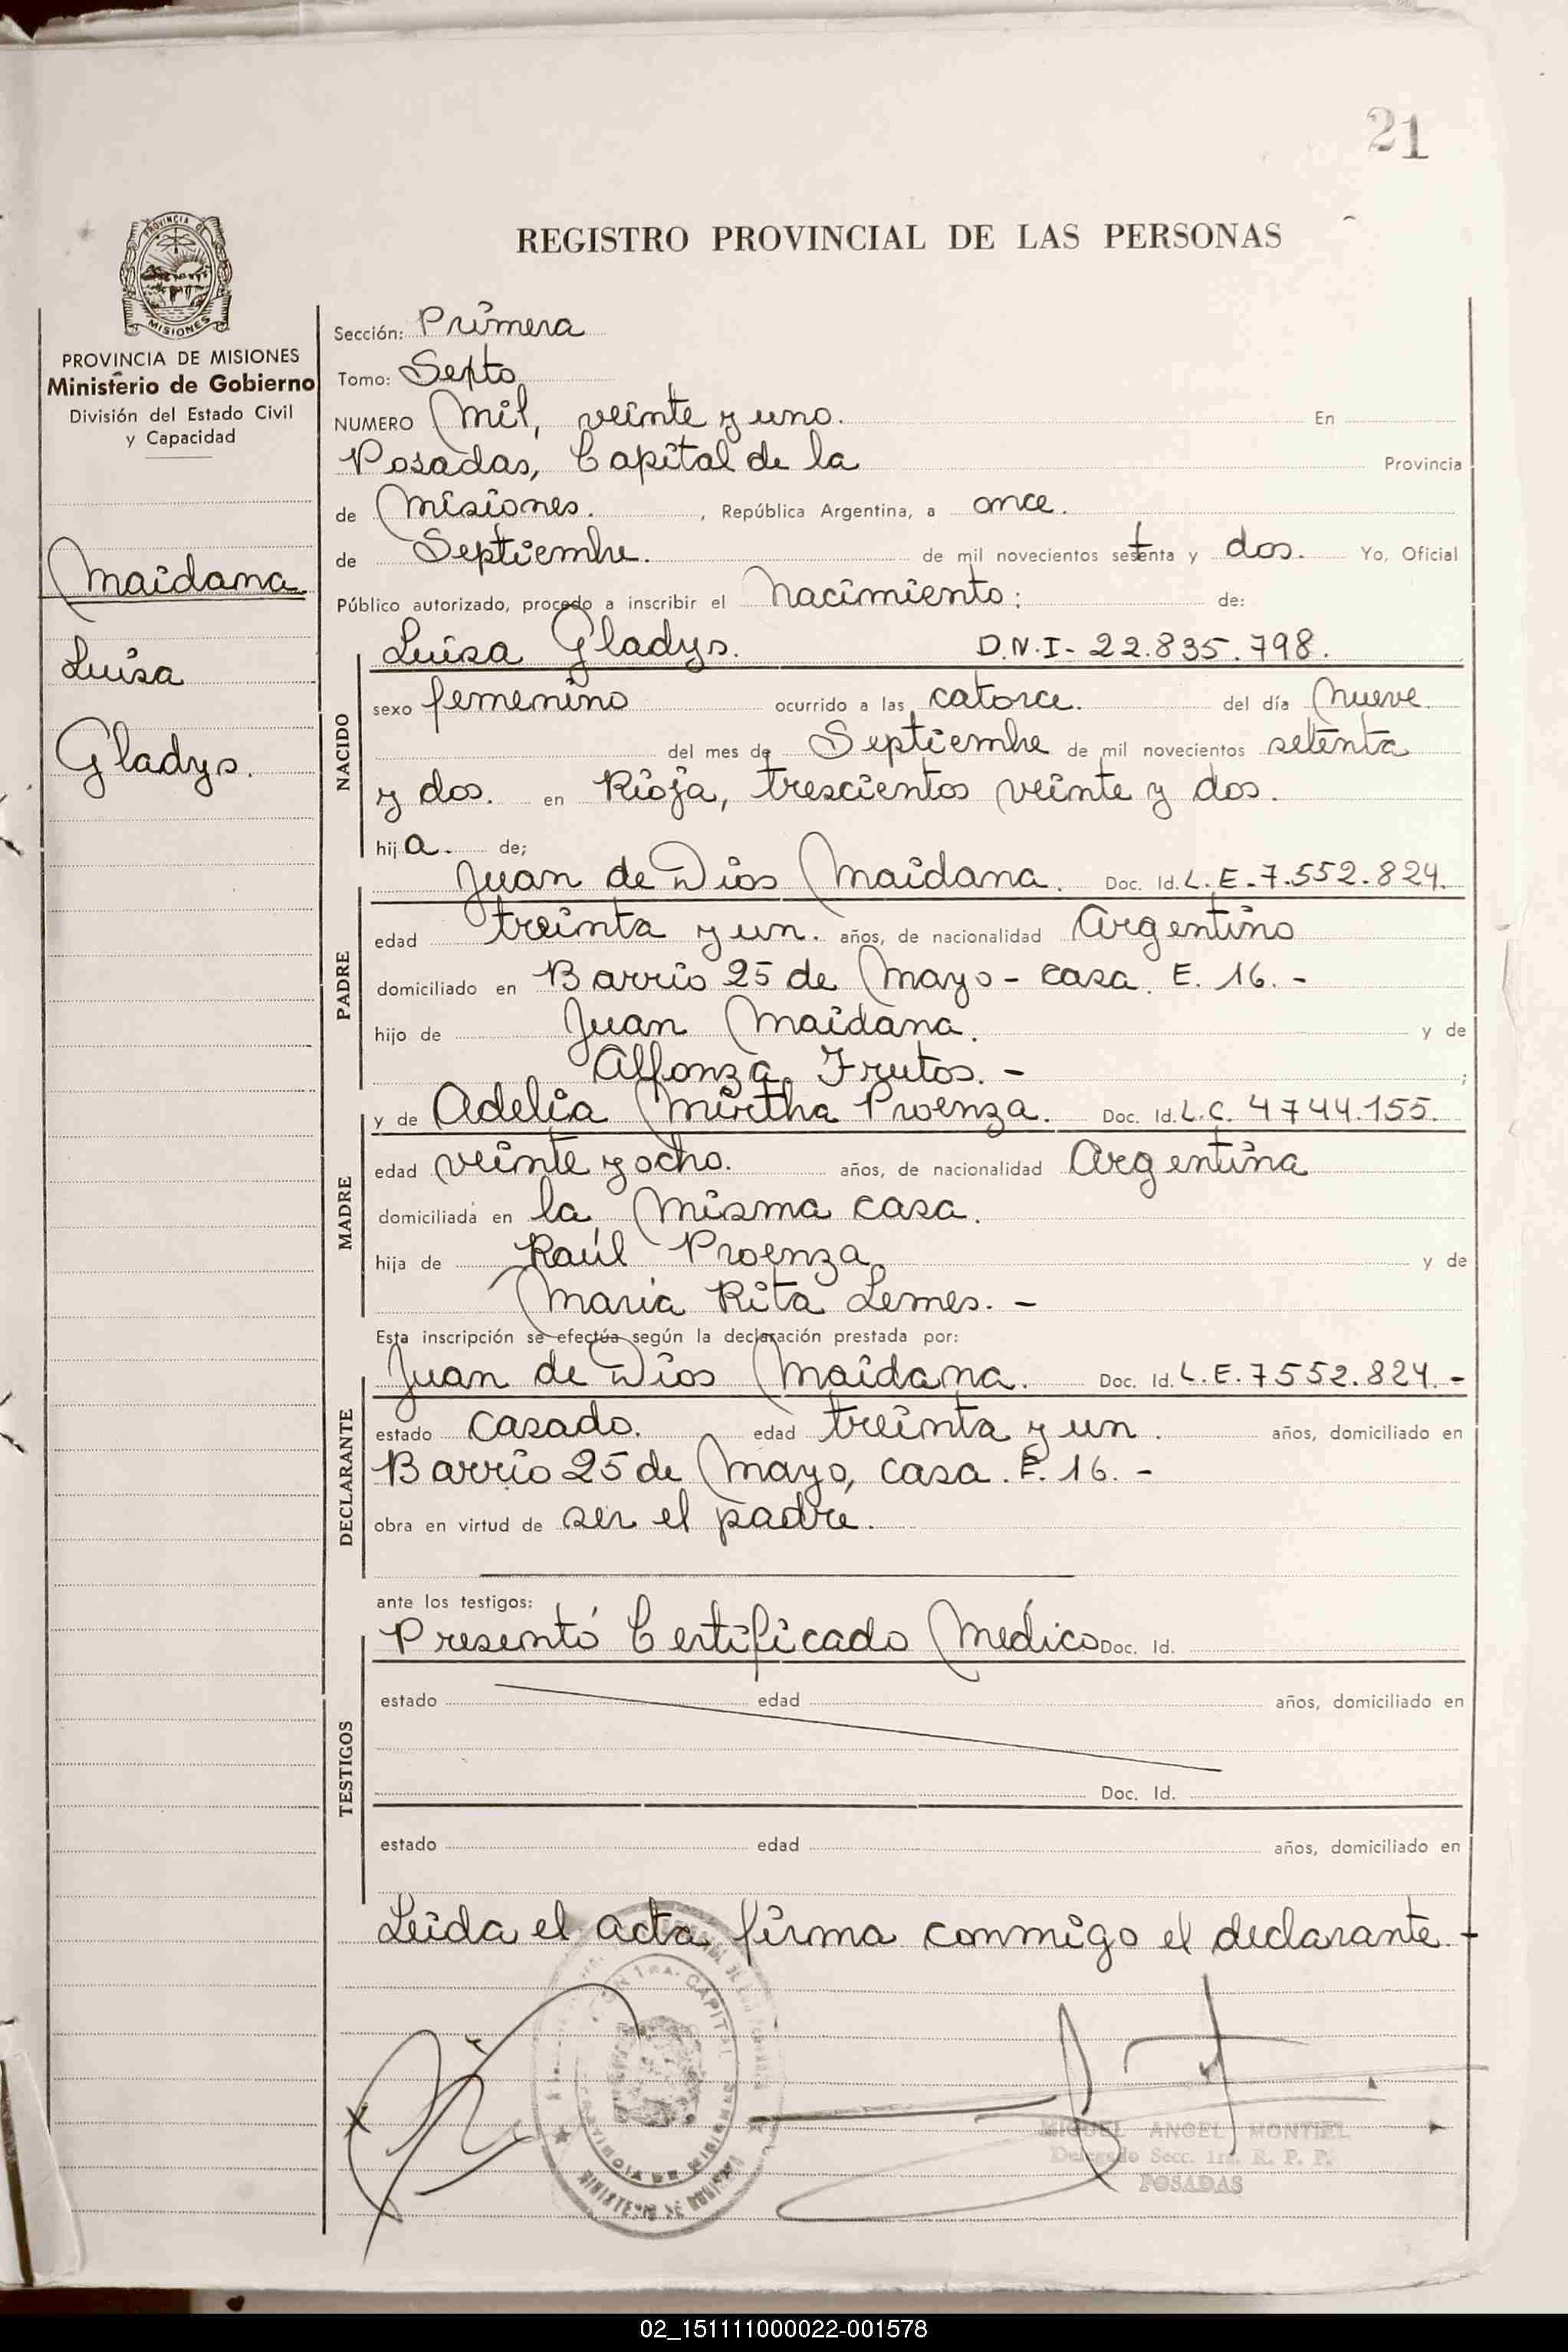 21
REGISTRO PROVINCIAL DE LAS PERSONAS
PROVINCIA DE
MISIONES
PROVINCIA DE MISIONES
Ministerio de Gobierno
División del Estado Civil
y Capacidad
Maidana
Luisa
Gladys.
Sección: Primera
Tomo: Septo
NUMERO Mil, veinte y uno. En
Posadas, Capital de la Provincia
de Misiones. , República Argentina, a once.
de Septiembre. de mil novecientos setenta y dos. Yo, Oficial
Público autorizado, procedo a inscribir el Nacimiento: de:
NACIDO
Luisa Gladys. D.N.I- 22.835.798.
sexo femenino ocurrido a las catorce. del día Nueve
del mes de Septiembre de mil novecientos setenta
y dos. en Rioja, trescientos veinte y dos.
hija. de;
PADRE
Juan de Dios Maidana. Doc. Id. L.E-7.552.824.
edad treinta y un. años, de nacionalidad Argentino
domiciliado en Barrio 25 de Mayo - casa. E. 16. -
hijo de Juan Maidana. y de
Alfonza Frutos. - ;
MADRE
y de Adelia Mirtha Proenza. Doc. Id. L.C. 4744.155.
edad veinte y ocho. años, de nacionalidad Argentina
domiciliada en la misma casa.
hija de Raúl Proenza y de
Maria Rita Lemes. -
Esta inscripción se efectúa según la declaración prestada por:
DECLARANTE
Juan de Dios Maidana. Doc. Id. L.E.7552.824. -
estado Casado. edad treinta y un. años, domiciliado en
Barrio 25 de Mayo, casa. E. 16. -
obra en virtud de ser el padre.
ante los testigos:
TESTIGOS
Presentó Certificado Medico Doc. Id.
estado edad años, domiciliado en
Doc. Id.
estado edad años, domiciliado en
Leida el acta firma conmigo el declarante. -
MIGUEL ANGEL MONTIEL
Delegado Secc. 1ra. R. P. P.
POSADAS
02_151111000022-001578